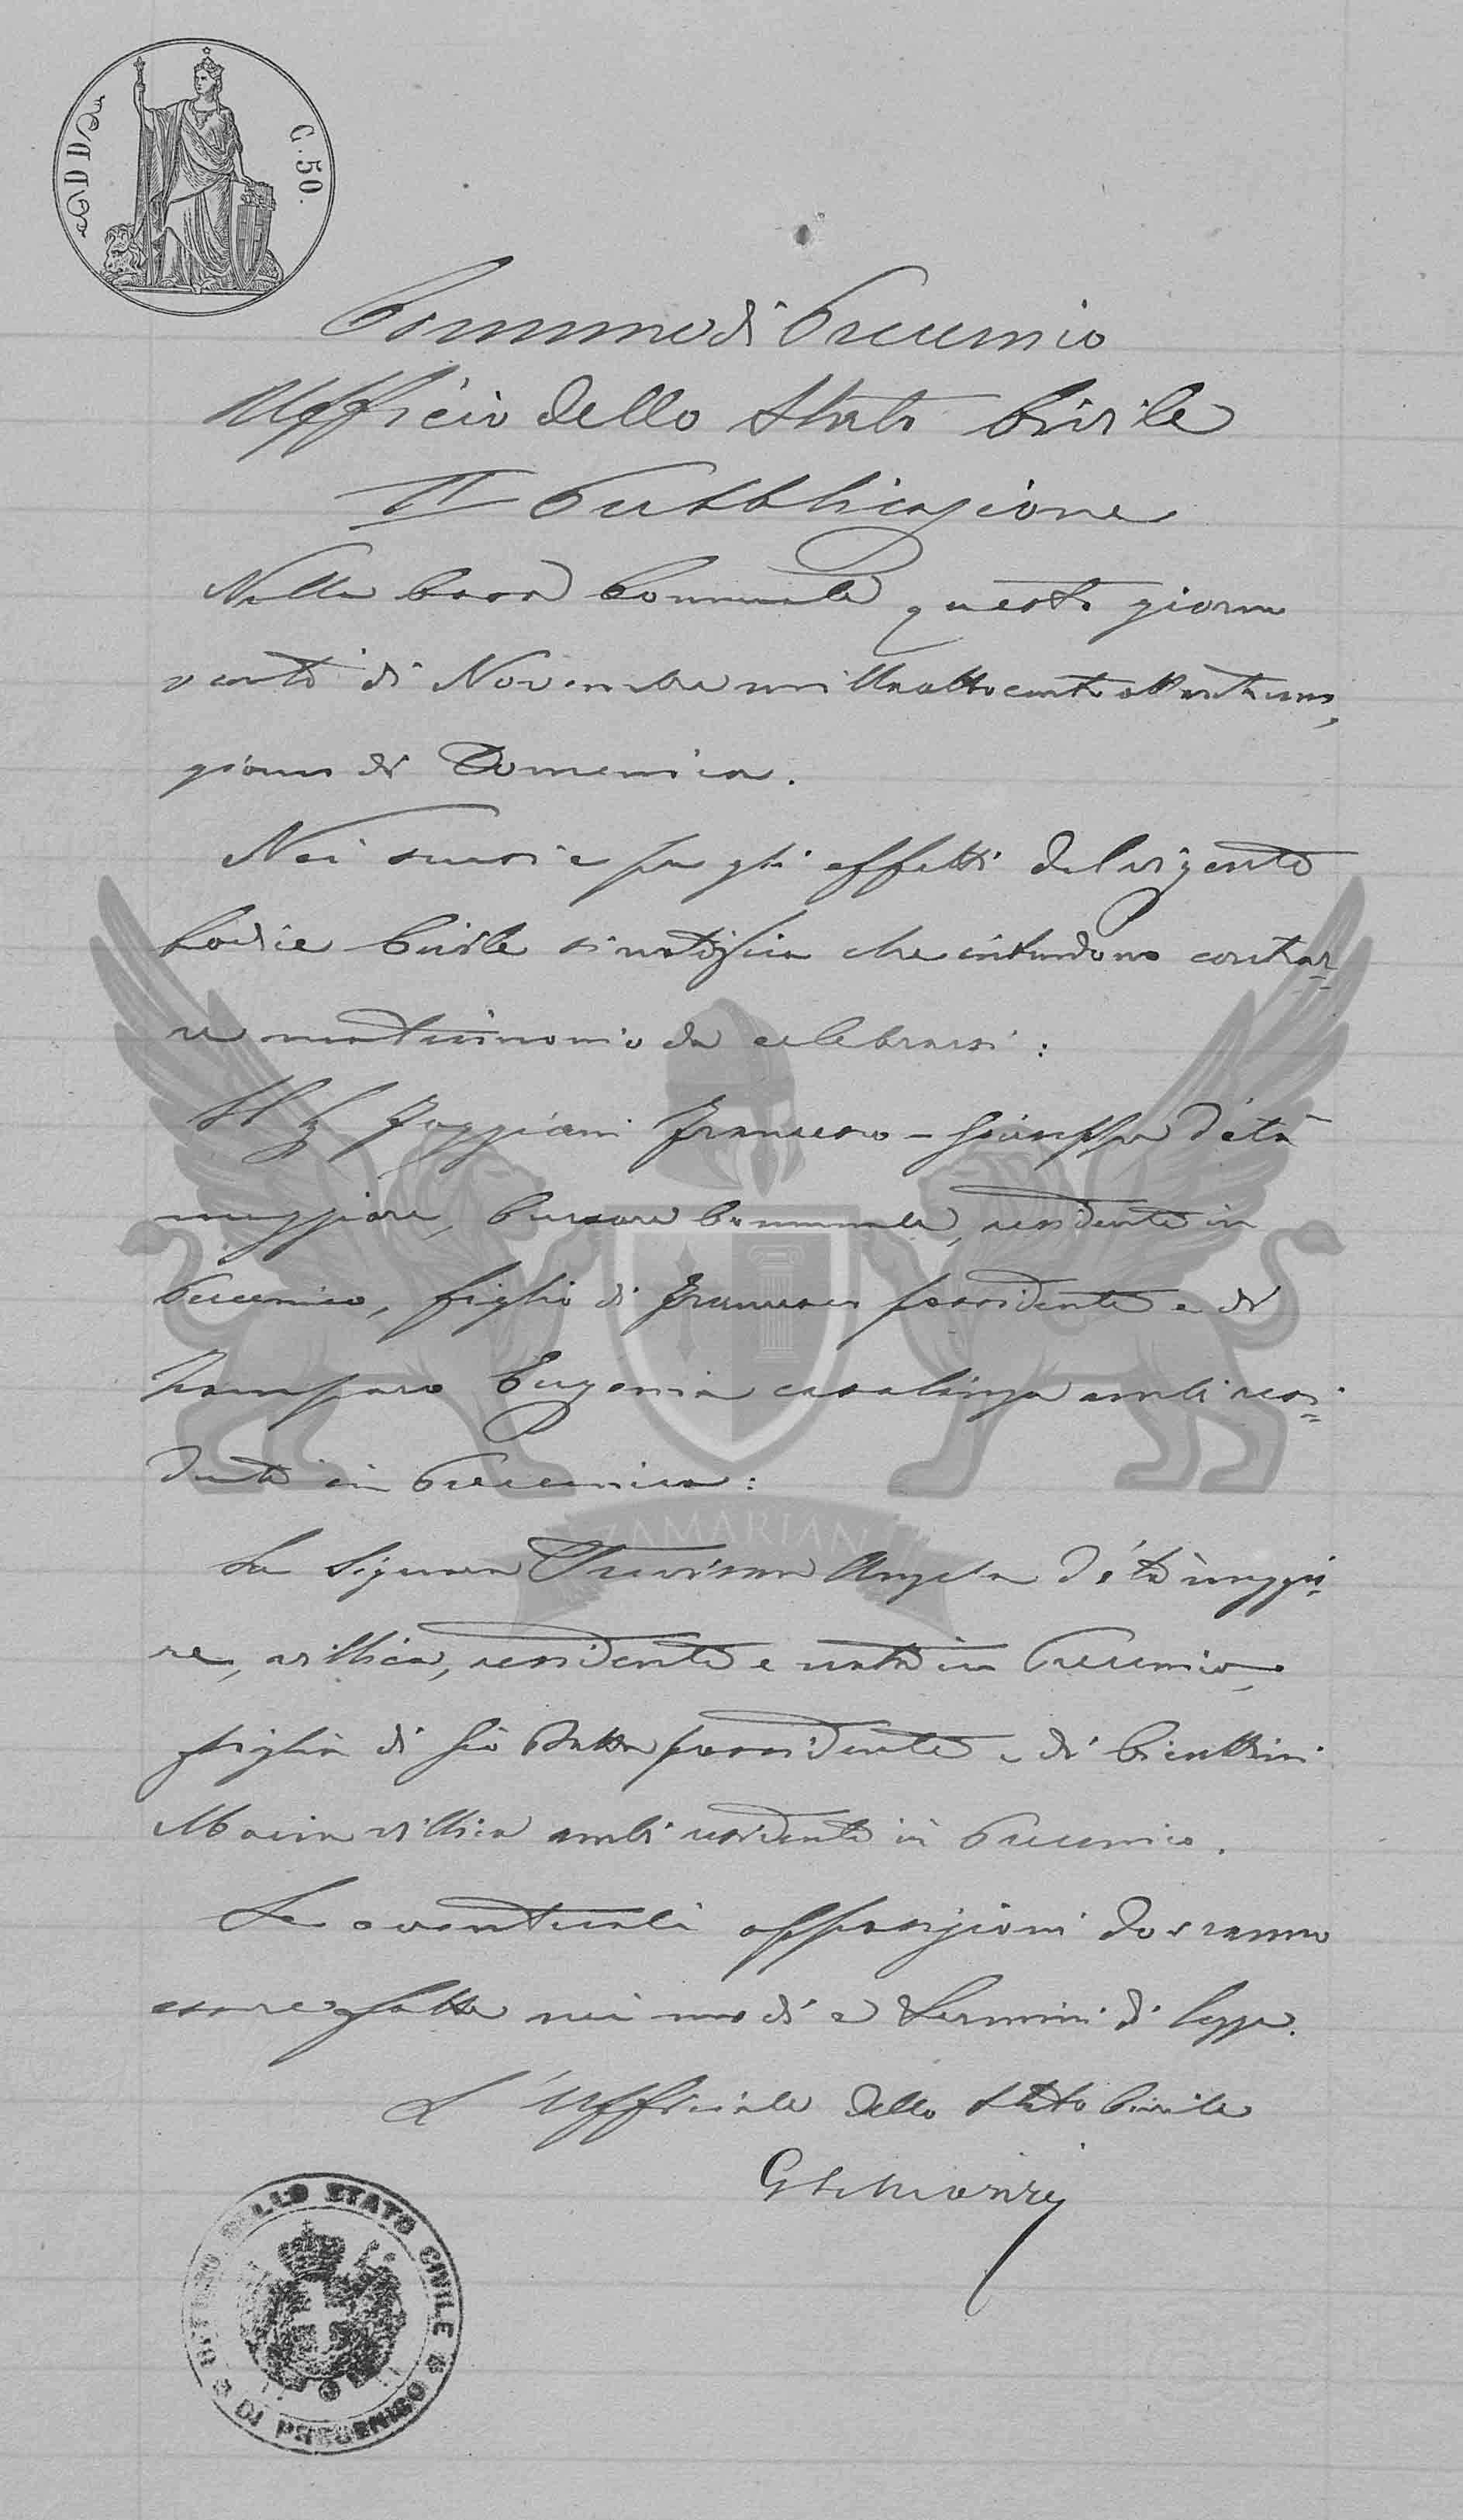 C. 50.
Comune di Precenico
Ufficio dello Stato Civile
II Pubblicazione
Nella Casa Comunale questo giorno
venti di Novembre mille ottocento ottantuno,
giorno di Domenica.
Nei sensi e per gli effetti del vigente
Codice Civile si notifica che intendono contrar=
re matrimonio da celebrarsi:
Il Foggiani Francesco - Giuseppe d'età
maggiore, Cursore Comunale, residente in
Precenico, figlio di Francesco possidente e di
Eugenia casalinga ambi resi=
denti in Precenico:
La Signora Trevisan Angela d'età maggio=
re, villica, residente e nata in Precenico,
figlia di Gio Batta possidente e di
Maria villica ambi residenti in Precenico.
Le eventuali opposizioni dovranno
essere fatte nei modi e termini di legge.
L'Ufficiale dello Stato Civile
UFFICIO DELLO STATO CIVILE
DI PRECENICO
ZAMARIAN